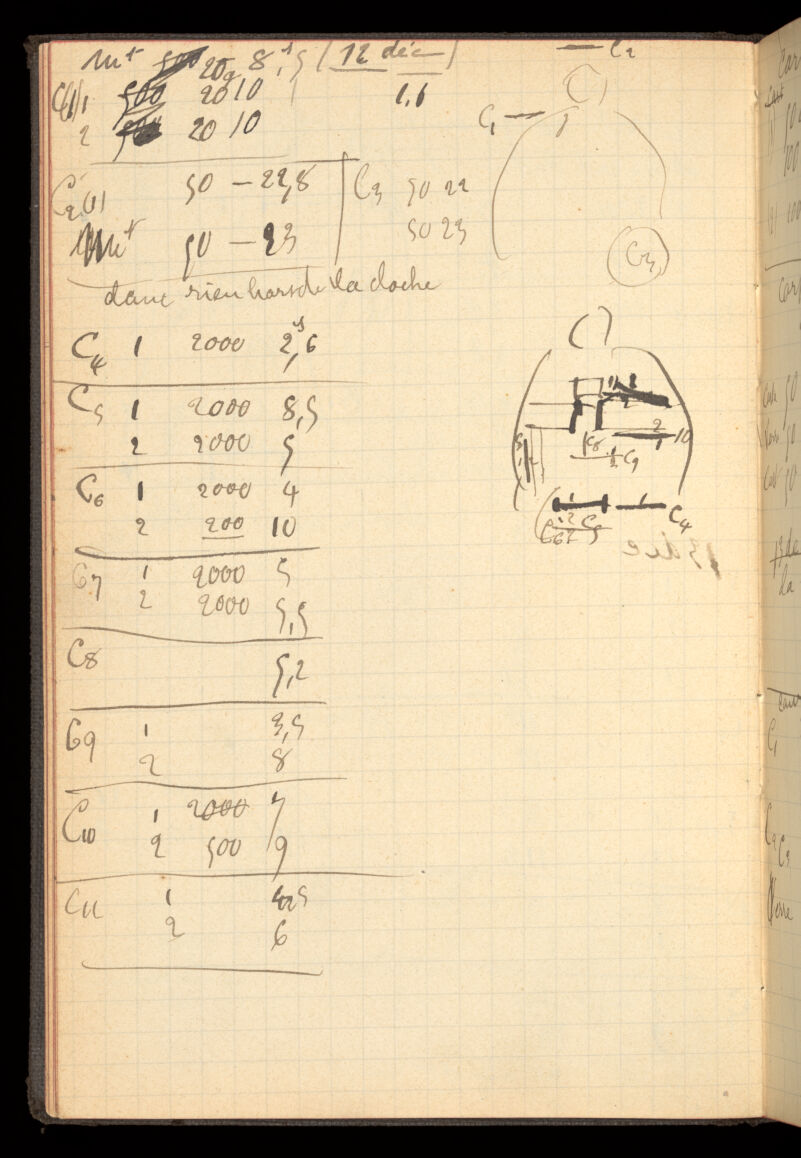 m^t 20g 8^s,5 (12 déc)
C(1)1 500 20 10 1,1
2 20 10
C2(1) 50 — 22,8
m^t 50 — 23
C3 50 22
50 23
donc rien hors de la cloche
C4 1 2000 2^s,6
C5 1 2000 8,5
2 2000 5
C6 1 2000 4
2 200 10
C7 1 2000 5
2 2000 5,5
C8 5,2
C9 1 3,5
2 8
C10 1 2000 7
2 500 9
C11 1
2 6
C2
C1
C3
1 2
2
C8 10
C9
1 1 C4
C5